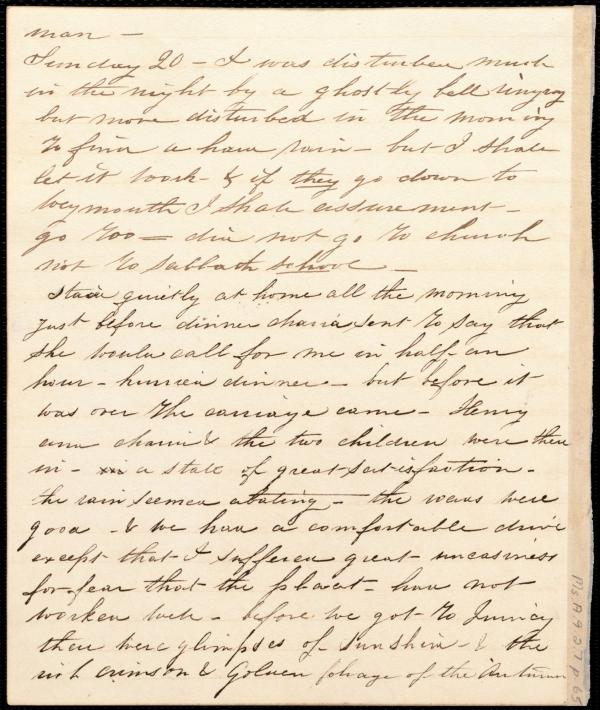 man –
Sunday 20 – I was disturbed much
in the night by a ghostly bell ringing
but more disturbed in the morning
to find a hard rain – but I shall
let it work – & if they go down to
Weymouth I shall assuredly
go too = did not go to church
nor to sabbath school –
Staid quietly at home all the morning
just before dinner Maria sent to say that
she would call for me in half an
hour – hurried dinner – but before it
was over the carriage came – Henry
and Maria & the two children were there
in – a state of great satisfaction –
the rain seemed abating – the roads were
good – & we had a comfortable drive
except that I suffered great uneasiness
for fear that the had not
worked well – before we got to Quincy
there were glimpses of sunshine – & the
rich crimson & golden foliage of the Autumn
Ms.A.9.2.7 p 65